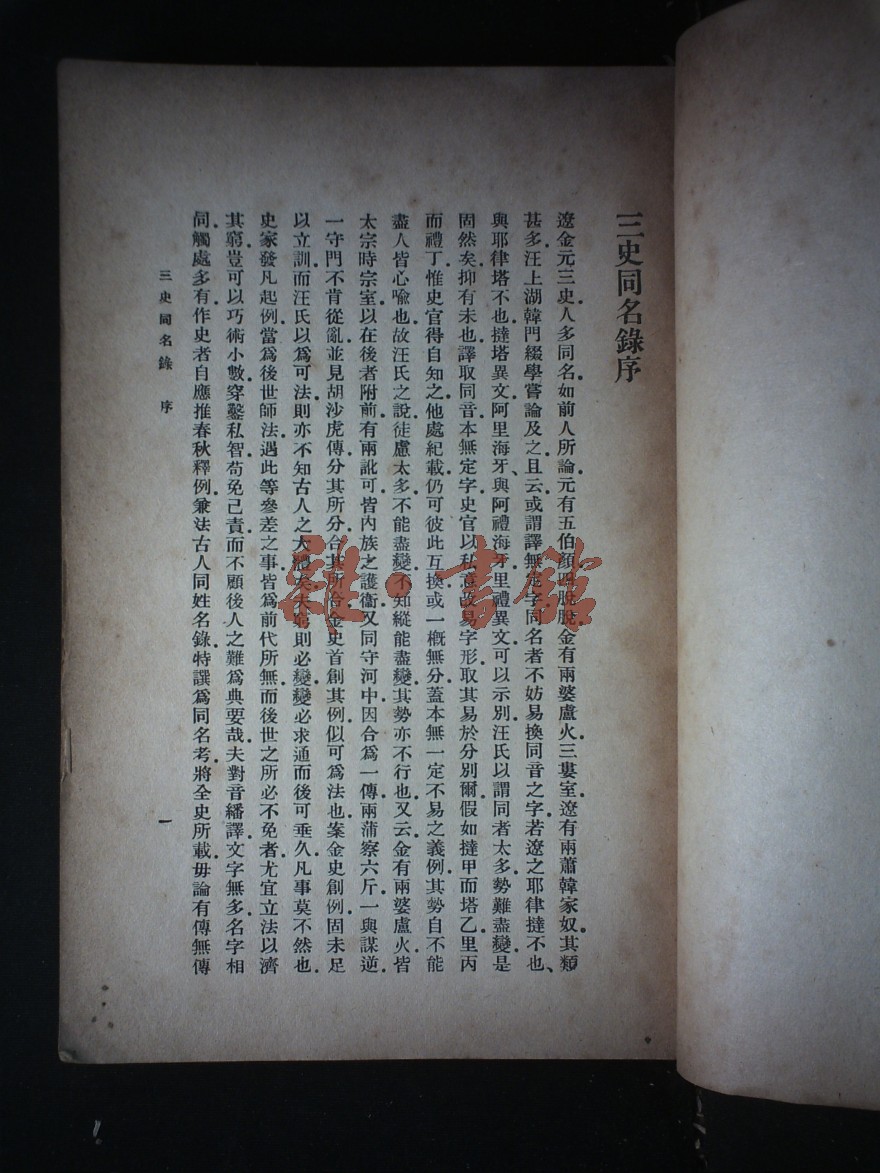 三史同名錄序
遼金元三史人多同名如前人所論元有五伯顏四脫脫金有兩婆盧火三婁室遼有兩蕭韓家奴其類
甚多汪上湖韓門綴學嘗論及之且云或謂譯無定字同名者不妨易換同音之字若遼之耶律撻不也、
與耶律塔不也撻塔異文阿里海牙、與阿禮海牙里禮異文可以示別汪氏以謂同者太多勢難盡變是
固然矣抑有未也譯取同音本無定字史官以私意改易字形取其易於分別爾假如撻甲而塔乙里丙
而禮丁惟史官得自知之他處紀載仍可彼此互換或一槪無分蓋本無一定不易之義例其勢自不能
盡人皆心喻也故汪氏之說徒慮太多不能盡變不知縱能盡變其勢亦不行也又云金有兩婆盧火皆
太宗時宗室以在後者附前有兩訛可皆內族之護衞又同守河中因合爲一傳兩蒲察六斤一與謀逆
一守門不肯從亂並見胡沙虎傳分其所分合其所合金史首創其例似可爲法也案金史創例固未足
以立訓而汪氏以爲可法則亦不知古人之大體矣夫窮則必變變必求通而後可垂久凡事莫不然也
史家發凡起例當爲後世師法遇此等參差之事皆爲前代所無而後世之所必不免者尤宜立法以濟
其窮豈可以巧術小數穿鑿私智苟免己責而不顧後人之難爲典要哉夫對音繙譯文字無多名字相
同觸處多有作史者自應推春秋釋例兼法古人同姓名錄特譔爲同名考將全史所載毋論有傳無傳
三史同名錄 序
一
雜·書館